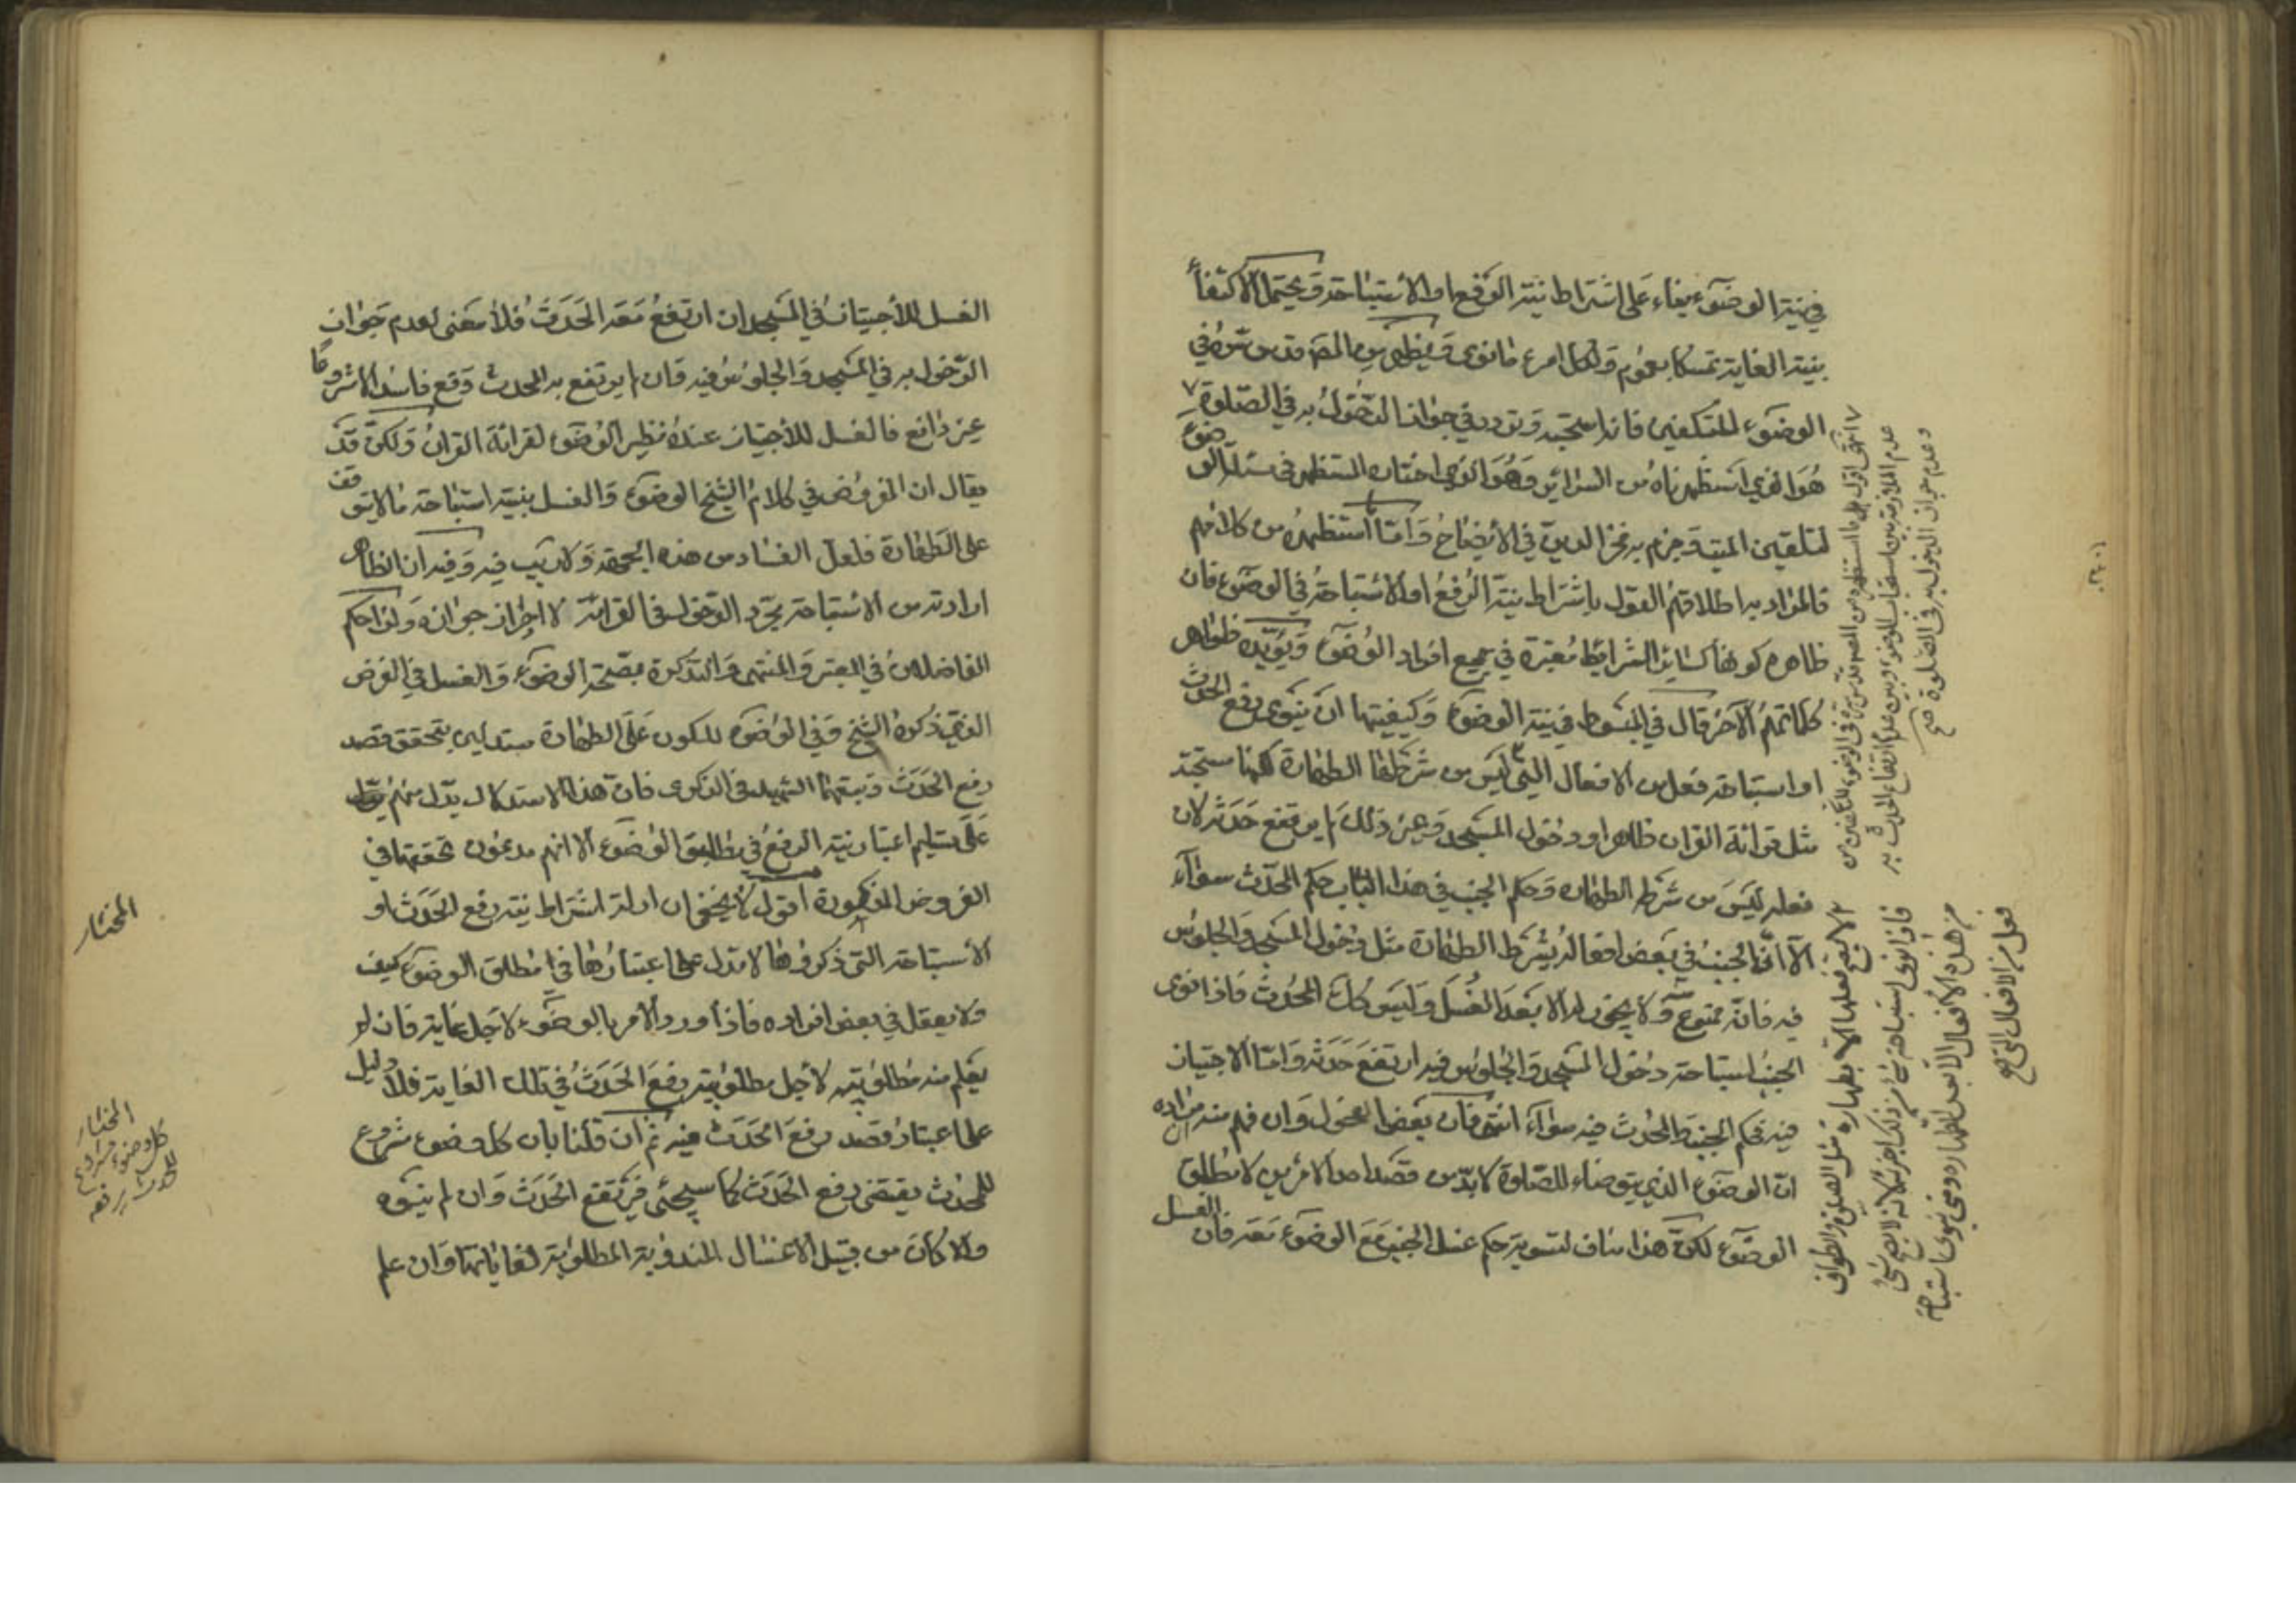 في نية الوضوء بناء على اشتراط نية الرفع او الاستباحة ويحتمل الاكتفاء
بنية الغاية تمسكا بعموم ولكل امرء ما نوى ويظهر من المصـ قدس سره في
الوضوء للتكفين فانه استحبه وتردد في جواز الدخول به في الصلوة
هو الذي استظهرناه من السرائر وهو الذي اختاره المستظهر في مسئلة الوضوء
لتلقين الميت وجزم به فخر الدين في الايضاح واما استظهره من كلامهم
فالمراد به اطلاقهم القول باشتراط نية الرفع او الاستباحة في الوضوء فان
ظاهره كونها كسائر الشرائط معتبرة في جميع افراد الوضوء ويؤيده ظواهر
كلماتهم الآخر قال في المبسوط في نية الوضوء وكيفيتها ان ينوى رفع الحدث
او استباحة فعل من الافعال التي ليس من شرطها الطهارة لكنها مستحبة
مثل قرائة القران ظاهرا ودخول المسجد وغير ذلك لم يرتفع حدثه لان
فعله ليس من شرطه الطهاره وحكم الجنب في هذا الباب حكم المحدث سواء
الا ان الجنب في بعض افعاله يشترط الطهارة مثل دخول المسجد والجلوس
فيه فانه ممنوع ولا يجوز له الا بعد الغسل وليس كك المحدث فاذا نوى
الجنب استباحة دخول المسجد والجلوس فيه ارتفع حدثه واما الاجتياز
فيه فحكم الجنب والمحدث فيه سواء انتهى فان بعض الفحول وان فهم منه مراده
ان الوضوء الذي يتوضاء للصلوة لابد من قصد احد الامرين لا مطلق
الوضوء لكن هذا مناف لتسوية حكم غسل الجنب مع الوضوء معه فان الغسل
انتهى اقول بل ما استظهره من المصـ قدس سره في الوضوء للتكفين من
عدم الملازمة بين استحباب الوضوء وبين عدم ارتفاع الحدث به
وعدم جواز الدخول به في الصلوة صح
لا يصح فعلها الا بطهارة مثل الصلوة والطواف
فاذا نوى استباحة شئ من ذلك اجزئه لانه لا يصح شئ
من هذه الافعال الا بعد الطهارة ومتى نوى استباحة
فعل من الافعال التي صح
الغسل للاجتياز في المسجد ان ارتفع معه الحدث فلا معنى لعدم جواز
الدخول به في المسجد والجلوس فيه وان لم يرتفع به الحدث وقع فاسدا لا مشروعا
غير رافع فالغسل للاجتياز عنده نظير الوضوء لقرائة القران ولكن قد
يقال ان المفروض في كلام الشيخ الوضوء والغسل بنية استباحة ما لا يتوقف
على الطهارة فلعل الفساد من هذه الجهة ولا ريب فيه وفيه ان الظاهر
ارادته من الاستباحة مجرد الدخول في القرائة لا احراز جوازه ولذا حكم
الفاضلان في المعتبر والمنتهى والتذكرة بصحة الوضوء والغسل في الفرض
الذي ذكره الشيخ وفي الوضوء للكون على الطهارة مستدلين بتحقق قصد
رفع الحدث وتبعهما الشهيد في الذكرى فان هذا الاستدلال يدل منهم
على تسليم اعتبار نية الرفع في مطلق الوضوء الا انهم مدعون تحققها في
الفروض المذكورة اقول لا يخفى ان ادلة اشتراط نية رفع الحدث او
الاستباحة التي ذكروها لا تدل على اعتبارها في مطلق الوضوء كيف
ولا يعقل في بعض افراده فاذا ورد الامر بالوضوء لاجل غاية فان لم
يعلم منه مطلوبيته لاجل مطلوبية رفع الحدث في تلك الغاية فلا دليل
على اعتبار قصد رفع الحدث فيه ثم ان قلنا بان كل وضوء مشروع
للمحدث يقتضي رفع الحدث كما سيجئ فيرتفع الحدث وان لم ينوه
والا كان من قبيل الاغسال المندوبة المطلوبة لغاياتها وان علم
المختار
المختار
كل وضوء مشروع